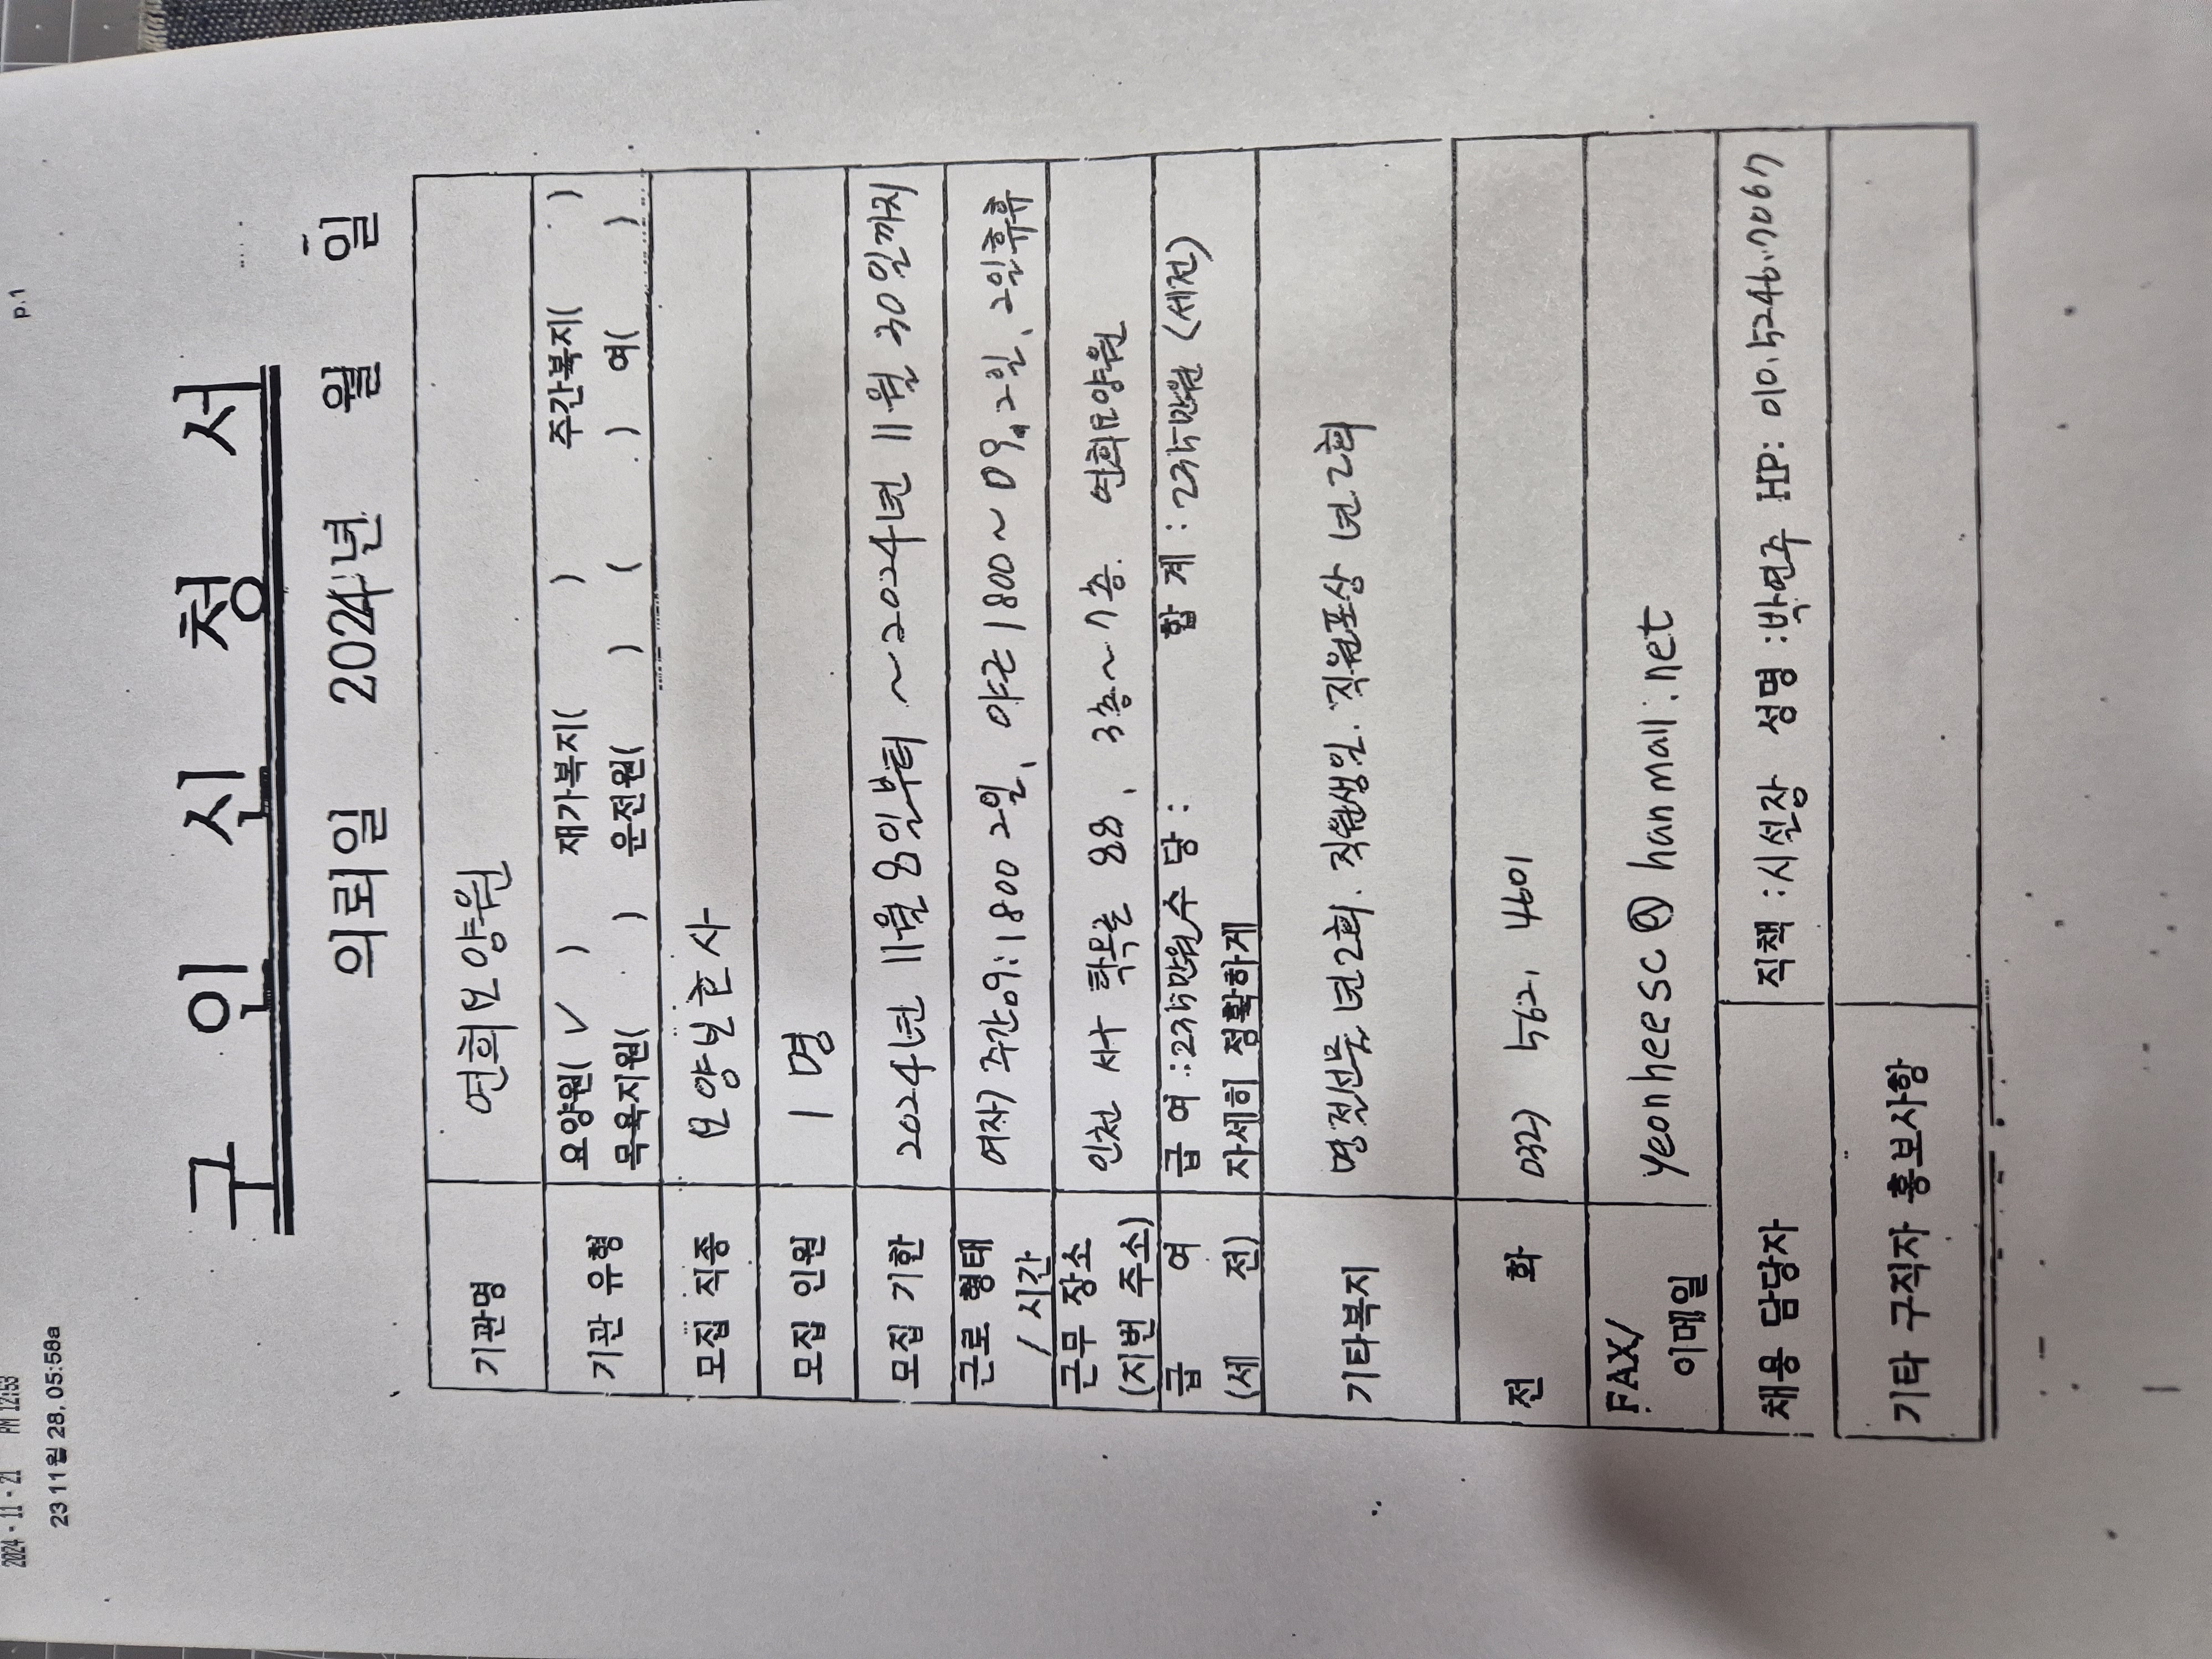 2024-11-21 PM 12:53
23 11월 28. 05:58a p.1
구 인 신 청 서
의뢰일 2024년 월 일
기관명 연희요양원
기관 유형 요양원( ✓ ) 재가복지( ) 주간복지( )
목욕지원( ) 운전원( ) ( ) 여( )
모집 직종 요양보호사
모집 인원 1명
모집 기한 2024년 11월 8일부터 ~2024년 11월 30일까지
근로 형태 / 시간 여자) 주간09:1800 2일, 야근 1800~09, 2일, 2일휴휴
근무 장소 (지번 주소) 인천 서구 탁옥로 88, 3층~7층. 연희요양원
급 여 (세 전) 급 여 : 235만원 수 당 : 합 계 : 235만원 (세전)
자세히 정확하게
기타복지 명절선물 년2회. 직원생일. 직원포상 년2회
전 화 032) 562. 4601
FAX/ 이메일 yeonheesc@hanmail.net
채용 담당자 직책 :시설장 성명 :박연주 HP: 010.5246.7067
기타 구직자 홍보사항